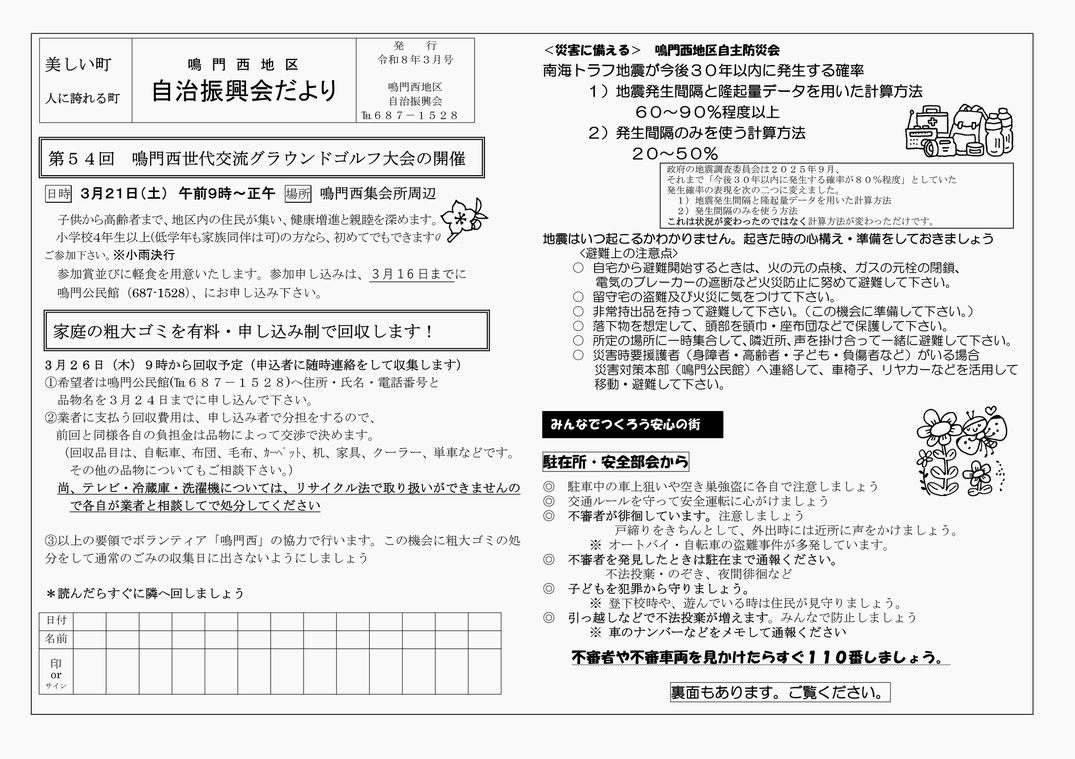 美しい町
人に誇れる町
鳴門西地区
自治振興会だより
発　行
令和８年３月号
鳴門西地区
自治振興会
℡６８７－１５２８
第５４回　鳴門西世代交流グラウンドゴルフ大会の開催
日時 3月21日(土)　午前9時～正午 場所 鳴門西集会所周辺
子供から高齢者まで、地区内の住民が集い、健康増進と親睦を深めます。
小学校4年生以上(低学年も家族同伴は可)の方なら、初めてでもできますの
ご参加下さい。※小雨決行
参加賞並びに軽食を用意いたします。参加申し込みは、３月１６日までに
鳴門公民館（687-1528）、にお申し込み下さい。
家庭の粗大ゴミを有料・申し込み制で回収します！
３月２６日（木）９時から回収予定（申込者に随時連絡をして収集します）
①希望者は鳴門公民館(℡６８７－１５２８)へ住所・氏名・電話番号と
品物名を３月２４日までに申し込んで下さい。
②業者に支払う回収費用は、申し込み者で分担をするので、
前回と同様各自の負担金は品物によって交渉で決めます。
（回収品目は、自転車、布団、毛布、ｶｰﾍﾟｯﾄ、机、家具、クーラー、単車などです。
その他の品物についてもご相談下さい。）
尚、テレビ・冷蔵庫・洗濯機については、リサイクル法で取り扱いができませんの
で各自が業者と相談してで処分してください
③以上の要領でボランティア「鳴門西」の協力で行います。この機会に粗大ゴミの処
分をして通常のごみの収集日に出さないようにしましょう
＊読んだらすぐに隣へ回しましょう
日付
名前
印
or
サイン
＜災害に備える＞　鳴門西地区自主防災会
南海トラフ地震が今後３０年以内に発生する確率
１）地震発生間隔と隆起量データを用いた計算方法
６０～９０％程度以上
２）発生間隔のみを使う計算方法
２０～５０％
政府の地震調査委員会は２０２５年９月、
それまで「今後３０年以内に発生する確率が８０％程度」としていた
発生確率の表現を次の二つに変えました。
１）地震発生間隔と隆起量データを用いた計算方法
２）発生間隔のみを使う方法
これは状況が変わったのではなく計算方法が変わっただけです。
地震はいつ起こるかわかりません。起きた時の心構え・準備をしておきましょう
<避難上の注意点>
○ 自宅から避難開始するときは、火の元の点検、ガスの元栓の閉鎖、
電気のブレーカーの遮断など火災防止に努めて避難して下さい。
○ 留守宅の盗難及び火災に気をつけて下さい。
○ 非常持出品を持って避難して下さい。（この機会に準備して下さい。）
○ 落下物を想定して、頭部を頭巾・座布団などで保護して下さい。
○ 所定の場所に一時集合して、隣近所、声を掛け合って一緒に避難して下さい。
○ 災害時要援護者（身障者・高齢者・子ども・負傷者など）がいる場合
災害対策本部（鳴門公民館）へ連絡して、車椅子、リヤカーなどを活用して
移動・避難して下さい。
みんなでつくろう安心の街
駐在所・安全部会から
◎ 駐車中の車上狙いや空き巣強盗に各自で注意しましょう
◎ 交通ルールを守って安全運転に心がけましょう
◎ 不審者が徘徊しています。注意しましょう
戸締りをきちんとして、外出時には近所に声をかけましょう。
※ オートバイ・自転車の盗難事件が多発しています。
◎ 不審者を発見したときは駐在まで通報ください。
不法投棄・のぞき、夜間徘徊など
◎ 子どもを犯罪から守りましょう。
※ 登下校時や、遊んでいる時は住民が見守りましょう。
◎ 引っ越しなどで不法投棄が増えます。みんなで防止しましょう
※ 車のナンバーなどをメモして通報ください
不審者や不審車両を見かけたらすぐ１１０番しましょう。
裏面もあります。ご覧ください。